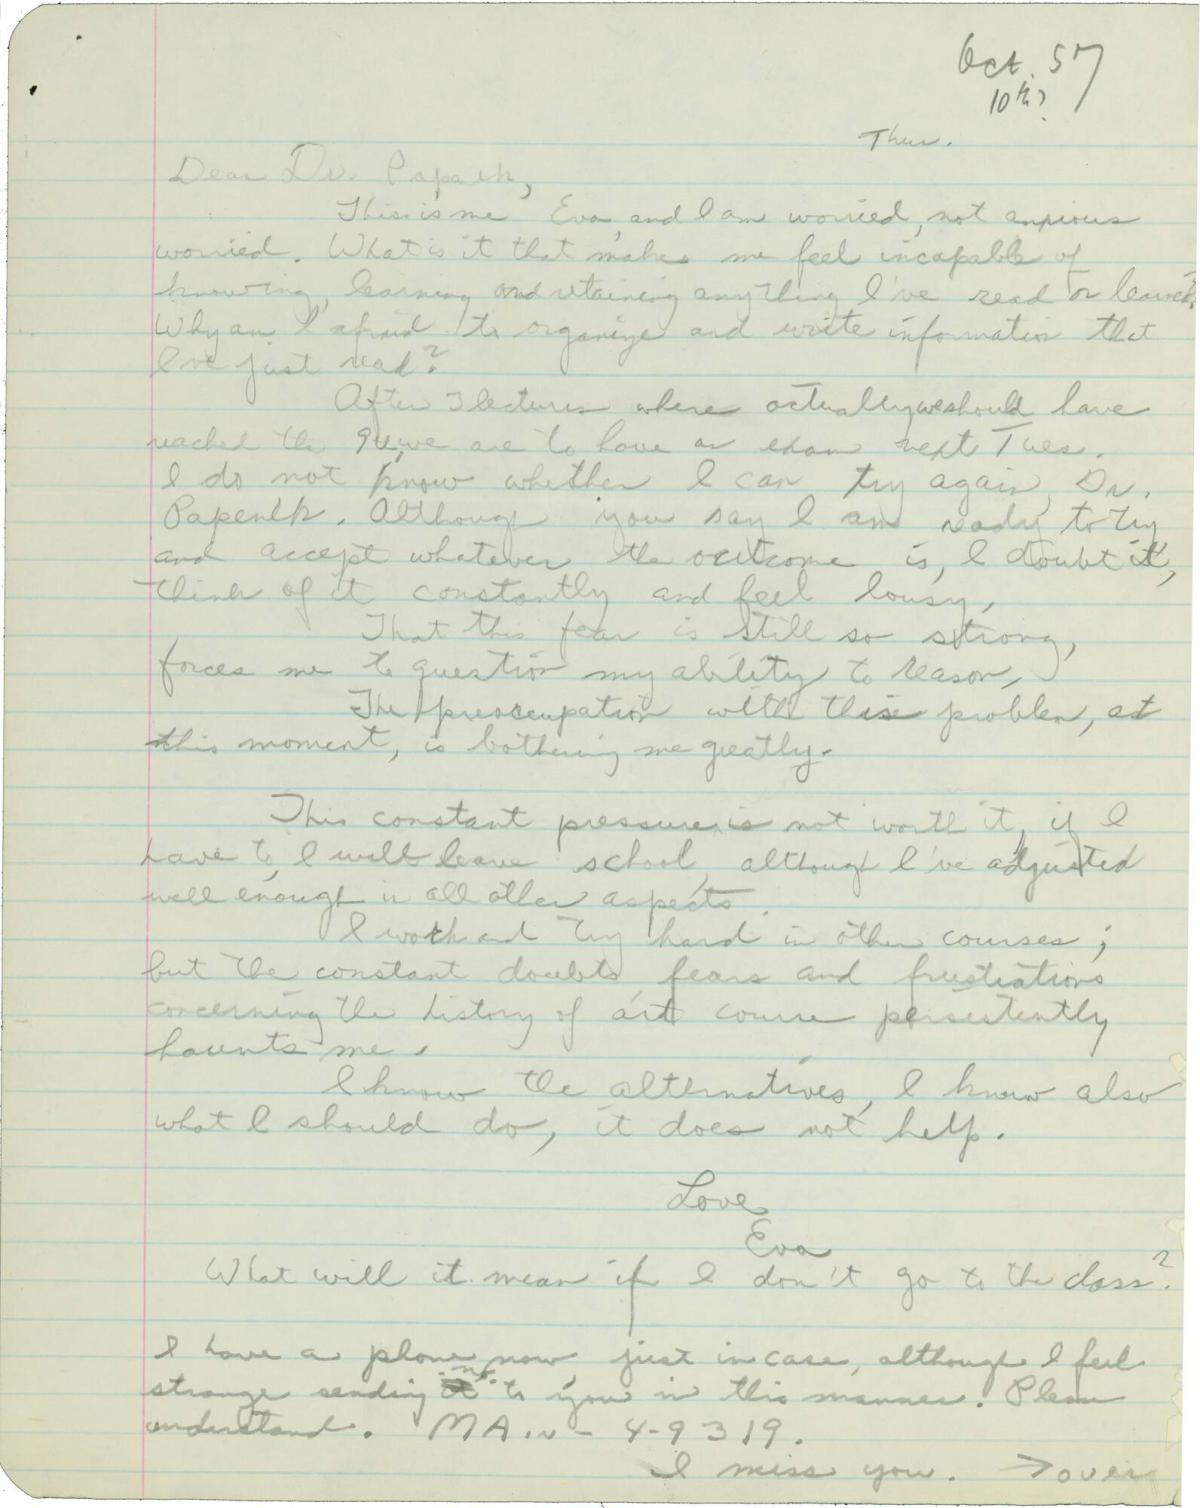 Oct. 57
10th?
Thur.
Dear Dr. Papanek,
This is me Eva, and I am worried, not anxious
worried. What is it that makes me feel incapable of
knowing, learning and retaining anything I've read or learned.
Why am I afraid to organize and write information that
I've just read?
After 3 lectures where actually we should have
reached the we are to have an exam next Tues.
I do not know whether I can try again, Dr.
Papenek. Although you say I am ready to try
and accept whatever the outcome is, I doubt it,
think of it constantly and feel lousy.
That this fear is still so strong,
forces me to question my ability to reason.
The preoccupation with this problem, at
this moment, is bothering me greatly.
This constant pressure is not worth it, if I
have to, I will leave school, although I've adjusted
well enough in all other aspects.
I work and try hard in other courses;
but the constant doubts, fears and frustrations
concerning the history of art course persistently
haunts me.
I know the alternatives, I know also
what I should do, it does not help.
Love
Eva
What will it mean if I don't go to the class?
I have a phone now just in case, although I feel
strange sending no. to you in this manner. Please
understand. MAin - 4-9319.
I miss you. → over